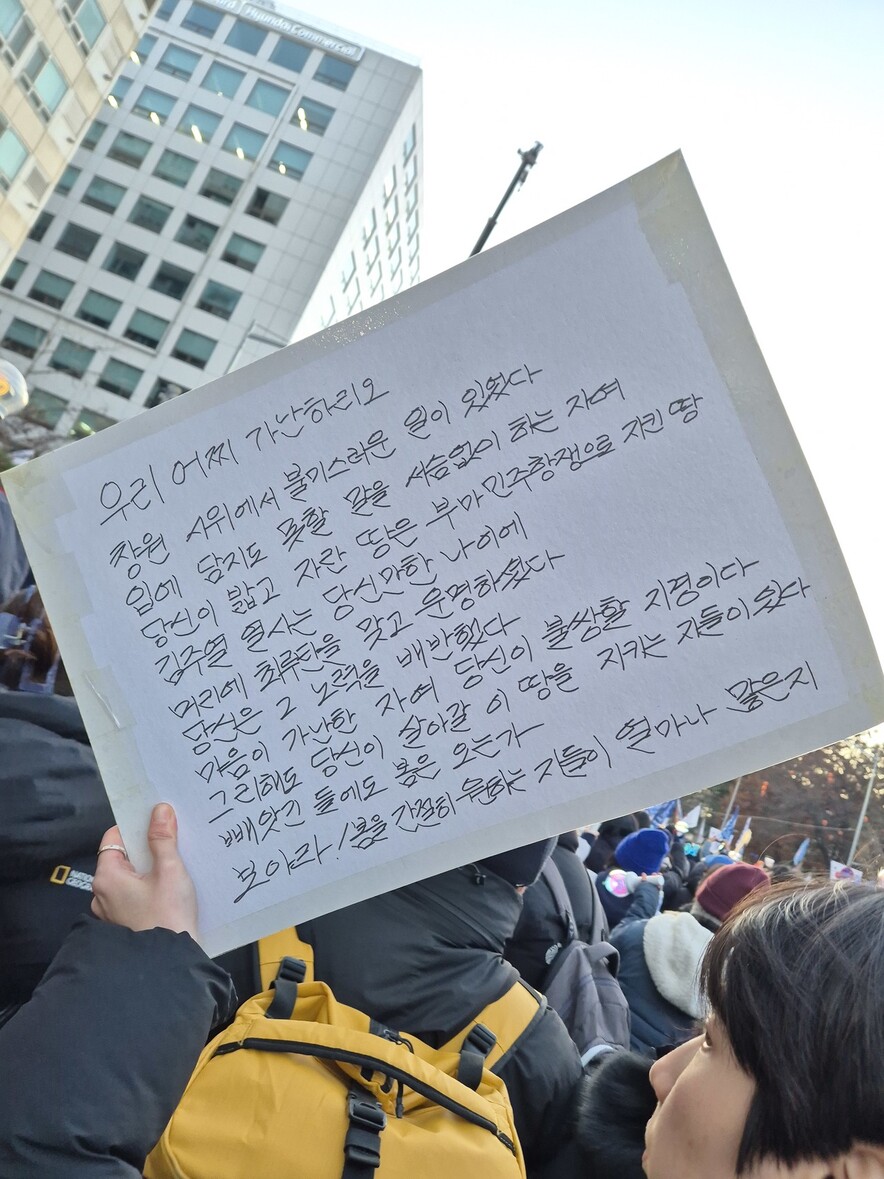 Hyundai Commercial
우리 어찌 가난하리오
창원 시위에서 불미스러운 일이 있었다
입에 담지도 못할 말을 서슴없이 하는 자여
당신이 밟고 자란 땅은 부마민주항쟁으로 지킨 땅
김주열 열사는 당신만한 나이에
머리에 최루탄을 맞고 운명하셨다
당신은 그 노력을 배반했다
마음이 가난한 자여 당신이 불쌍할 지경이다
그리해도 당신이 살아갈 이 땅을 지키는 자들이 있다
빼앗긴 들에도 봄은 오는가
보아라! 봄을 간절히 원하는 자들이 얼마나 많은지
NATIONAL